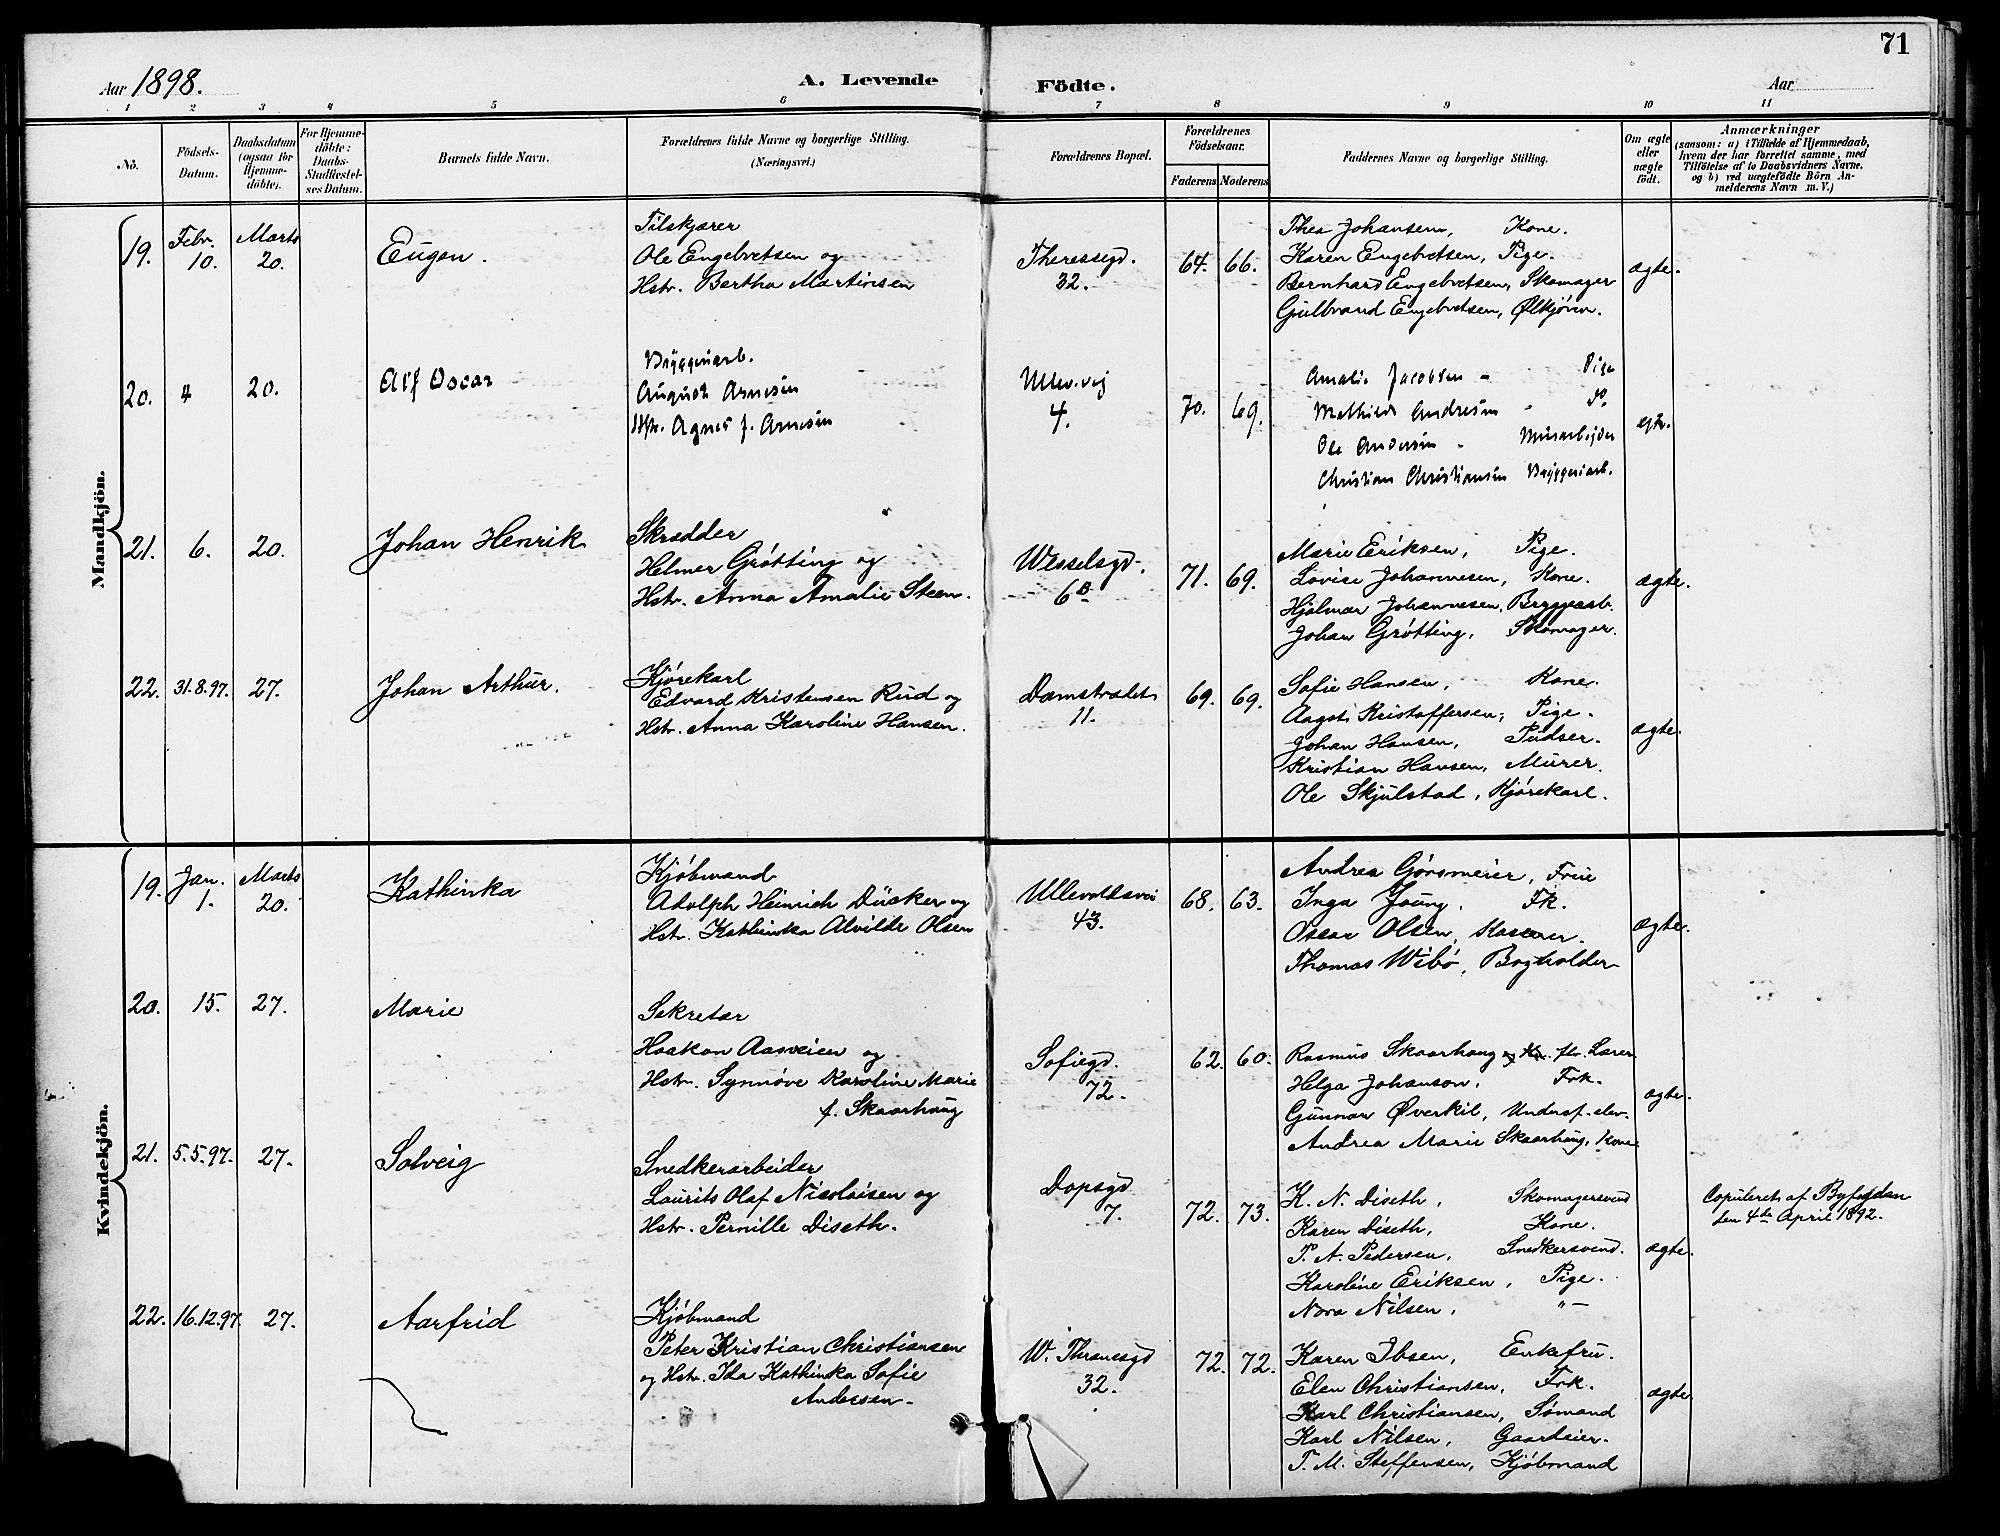 71
Aar 1898.
A. Levende Födte.
Aar
1 2 3 4 5 6 7 8 9 10 11
No.
Födsels-Datum.
Daabsdatum (ogsaa for Hjemme-döbte).
For Hjemme-döbte: Daabs-Stadfæstel-ses Datum.
Barnets fulde Navn.
Forældrenes fulde Navne og borgerlige Stilling.
(Næringsvei.)
Forældrenes Bopæl.
Forældrenes Födselsaar.
Faderens Moderens
Faddernes Navne og borgerlige Stilling.
Om ægte eller uægte födt.
Anmærkninger
(saasom: a) i Tilfælde af Hjemmedaab,
hvem der har forrettet samme, med
Tilföielse af to Daabsvidners Navne.
og b) ved uægtefödte Börn An-
melderens Navn m. V.)
Mandkjön.
19. Febr. 10. Marts 20. Eugen.
Tilskjærer
Ole Engebretsen og
Hstr. Bertha Martinsen
Theressgd. 32. 64. 66.
Thea Johansen, Kone.
Karen Engebretsen, Pige.
Bernhard Engebretsen, Skomager
Gulbrand Engebretsen, Ølkjører.
ægte.
20. 4 20. Alf Oscar
Bryggeriarb.
August Arnesen
Hstr. Agnes f. Arnesen
Ullev.vej 4. 70. 69.
Amalie Jacobsen - Pige
Mathilde Andresen - Do.
Ole Andersen - Murarbejder
Christian Christiansen Bryggeriarb.
ægte.
21. 6. 20. Johan Henrik
Skrædder
Helmer Grøtting og
Hstr. Anna Amalie Steen.
Wesselsgd. 6B 71. 69.
Marie Eriksen, Pige.
Lovise Johannesen, Kone.
Hjalmar Johannesen, Bryggearb.
Johan Grøtting, Skomager.
ægte.
22. 31.8.97. 27. Johan Arthur.
Kjørekarl
Edvard Kristensen Rud og
Hstr. Anna Karoline Hansen.
Damstrædet 11. 69. 69.
Sofie Hansen, Kone.
Aagot Kristoffersen, Pige.
Johan Hansen, Pudser.
Kristian Hansen, Murer.
Ole Skjulstad, Kjørekarl.
ægte.
Kvindekjön.
19. Jan. 1. Marts 20. Kathinka
Kjøbmand
Adolph Heinrich Dücker og
Hstr. Kathinka Alvilde Olsen
Ullevoldsvei 43. 68. 63.
Andrea Gørsmeier, Frue
Inga Young. Fk.
Oscar Olsen, Kasserer.
Thomas Wibø, Bogholder
ægte.
20. 15. 27. Marie
Sekretær
Haakon Aasveien og
Hstr. Synnøve Karoline Marie
f. Skaarhaug
Sofiegd. 72. 62. 60.
Rasmus Skaarhaug Lærer
Helga Johanson, Frk.
Gunnar Øverkil, Undersf.elev.
Andrea Marie Skaarhaug, Kone
ægte.
21. 5.5.97. 27. Solveig
Snedkerarbeider
Laurits Olaf Nicolaisen og
Hstr. Pernille Diseth.
Dopsgd 7. 72. 73.
K. N. Diseth, Skomagersvend
Karen Diseth, Kone.
P. A. Pedersen, Snedkersvend.
Karoline Eriksen, Pige.
Nora Nilsen, "-
ægte.
Copuleret af Byfogdan
den 4de April 1892.
22. 16.12.97. 27. Aarfrid
Kjøbmand
Peter Kristian Christiansen
og Hstr. Ida Kathinka Sofie
Andersen.
W. Thranesgd 32. 72. 72.
Karen Ibsen, Enkefru.
Elen Christiansen, Frk.
Karl Christiansen, Sømand
Karl Nilsen, Gaardeier.
T. M. Steffensen, Kjøbmand
ægte.